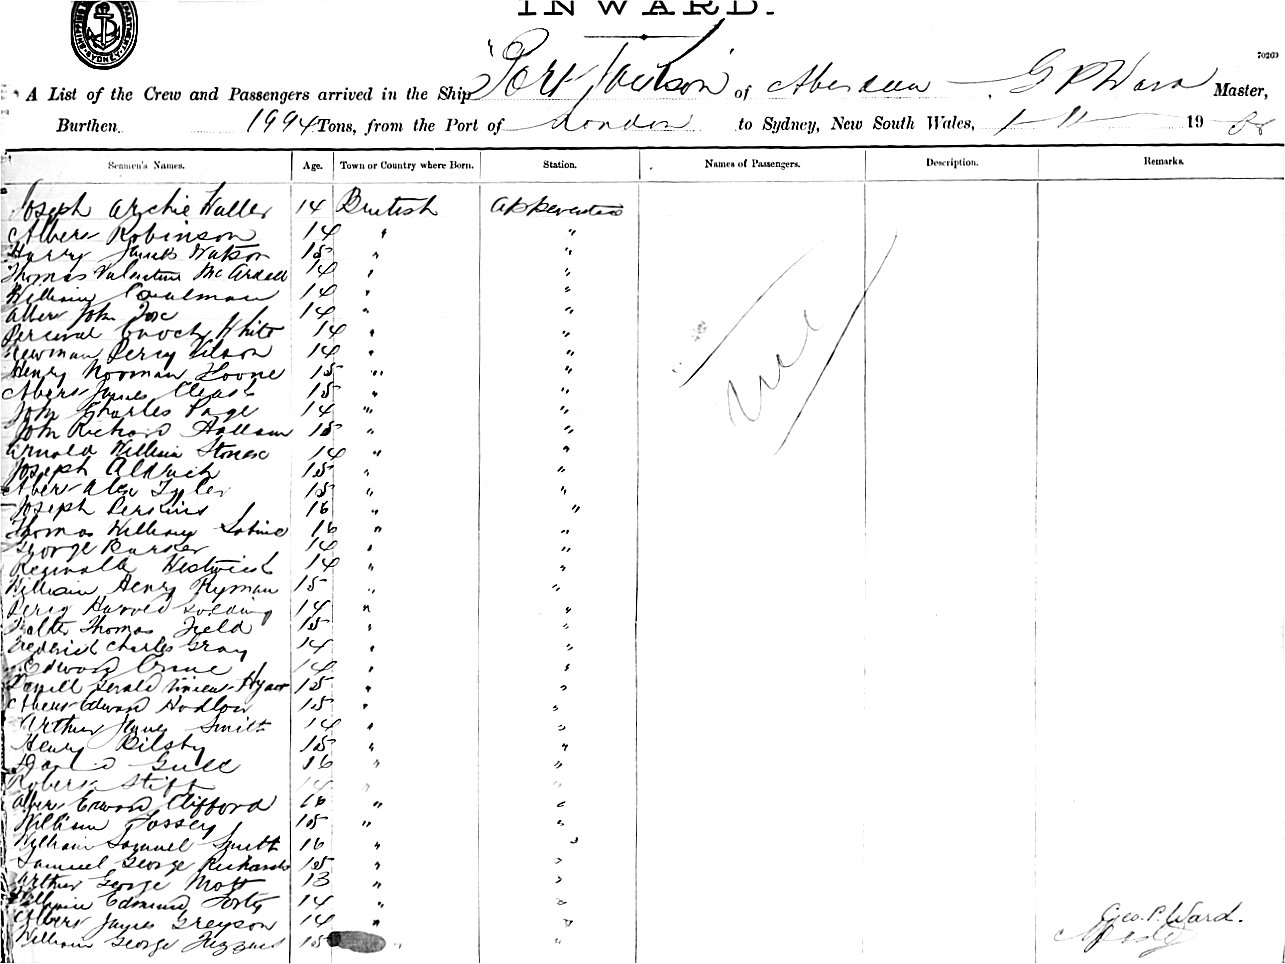 INWARD.
70269
A List of the Crew and Passengers arrived in the Ship "Port Jackson" of Aberdeen G P Ward Master,
Burthen 1994 Tons, from the Port of London to Sydney, New South Wales, 1 - 11 - 19
Seamen's Names. Age. Town or Country where Born. Station. Names of Passengers. Description. Remarks.
Joseph Archie Waller 14 British Apprentice
Albert Robinson 14 " "
Harry James Watson 15 " "
Thomas Valentine McArdell 14 " "
William Coulman 14 " "
Albert John Fox 14 " "
Percival Enoch White 14 " "
Newman Percy Wilson 14 " "
Henry Norman Toone 15 " "
Albert James 15 " "
John Charles Page 14 " "
John Richard Hallam 15 " "
Arnold William Stones 14 " "
Joseph Aldrich 15 " "
Albert Alex Tyler 15 " "
Joseph Perkins 16 " "
Thomas William Sabine 16 " "
George Barker 14 " "
Reginald Westwick 14 " "
William Henry Ryman 15 " "
Percy Harold Golding 14 " "
Walter Thomas Field 15 " "
Frederick Charles Gray 14 " "
Edward Crane 14 " "
Gerald Vincent 15 " "
Albert Edward Hudlow 15 " "
Arthur James Smith 14 " "
Henry Bilsby 15 " "
David Gull 16 " "
Robert Stiff 14 " "
Albert Edward Clifford 16 " "
William Fossey 15 " "
William Samuel Smith 16 " "
Samuel George Richards 15 " "
Arthur George Mott 13 " "
William Edmund Forty 14 " "
Albert James Greyson 14 " "
William George 15 " "
Nil
Geo. P. Ward.
Master